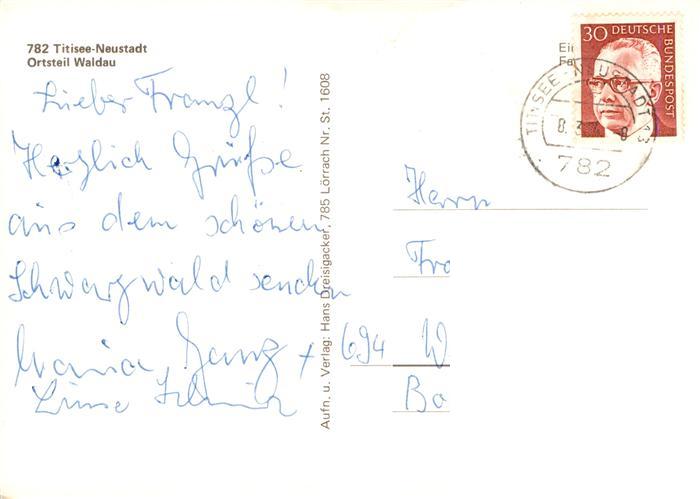 782 Titisee-Neustadt
Ortsteil Waldau
Lieber Franzl!
Herzlich Grüße
aus dem schönen
Schwarzwald senden
Maria, Ganz +
Aufn. u. Verlag: Hans Dreisigacker, 785 Lörrach Nr. St. 1608
30 DEUTSCHE
BUNDESPOST
TITISEE-NEUSTADT
782
Herrn
Fra
694 W
Ba